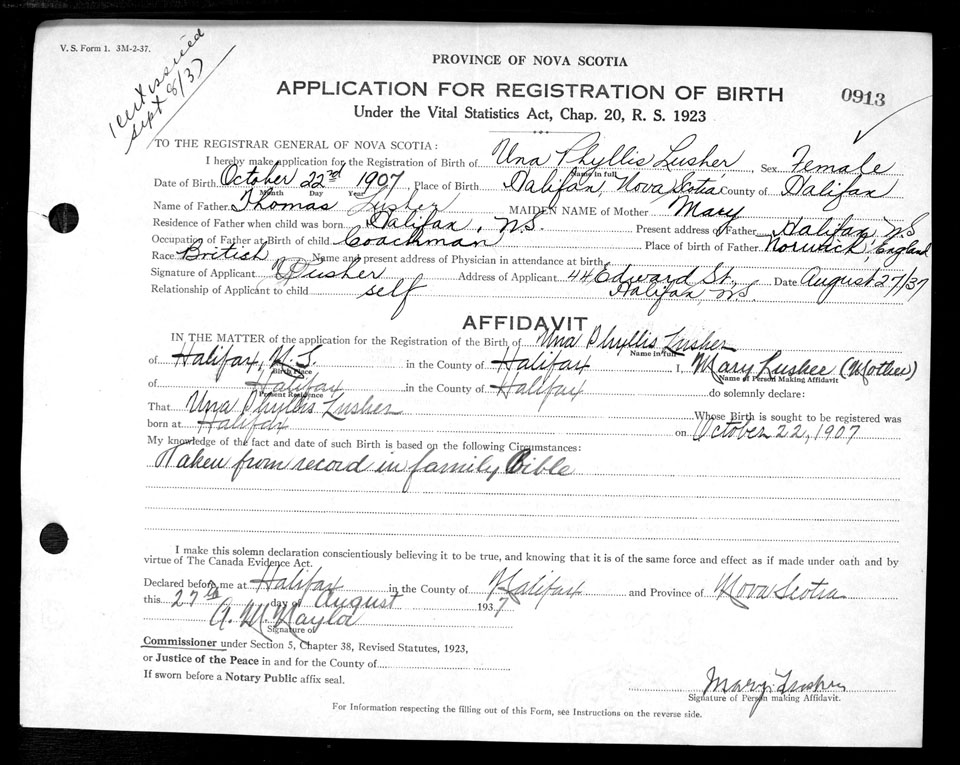 V. S. Form 1. 3M-2-37.
Cert issued
Sept 8/37
PROVINCE OF NOVA SCOTIA
APPLICATION FOR REGISTRATION OF BIRTH
0913
Under the Vital Statistics Act, Chap. 20, R. S. 1923
TO THE REGISTRAR GENERAL OF NOVA SCOTIA:
I hereby make application for the Registration of Birth of Una Phyllis Lusher Sex Female
Name in full
Date of Birth October 22nd 1907, Place of Birth Halifax, Nova Scotia County of Halifax
Month Day Year
Name of Father Thomas Lusher MAIDEN NAME of Mother Mary
Residence of Father when child was born Halifax, N.S. Present address of Father Halifax N.S
Occupation of Father at Birth of child Coachman Place of birth of Father Norwich, England
Race British Name and present address of Physician in attendance at birth
Signature of Applicant Lusher Address of Applicant 44 Edward St. Date August 27/37
Relationship of Applicant to child self Halifax, N.S.
AFFIDAVIT
IN THE MATTER of the application for the Registration of the Birth of Una Phyllis Lusher
Name in full
of Halifax, N.S. in the County of Halifax I, Mary Lusher (Mother)
Birth Place Name of Person Making Affidavit
of Halifax in the County of Halifax do solemnly declare:
Present Residence
That Una Phyllis Lusher Whose Birth is sought to be registered was
born at Halifax on October 22, 1907
My knowledge of the fact and date of such Birth is based on the following Circumstances:
Taken from record in family Bible
I make this solemn declaration conscientiously believing it to be true, and knowing that it is of the same force and effect as if made under oath and by
virtue of The Canada Evidence Act.
Declared before me at Halifax in the County of Halifax and Province of Nova Scotia
this 27th day of August 1937
A. M. Naylor
Signature of
Commissioner under Section 5, Chapter 38, Revised Statutes, 1923,
or Justice of the Peace in and for the County of
If sworn before a Notary Public affix seal.
Mary Lusher
Signature of Person making Affidavit.
For Information respecting the filling out of this Form, see Instructions on the reverse side.